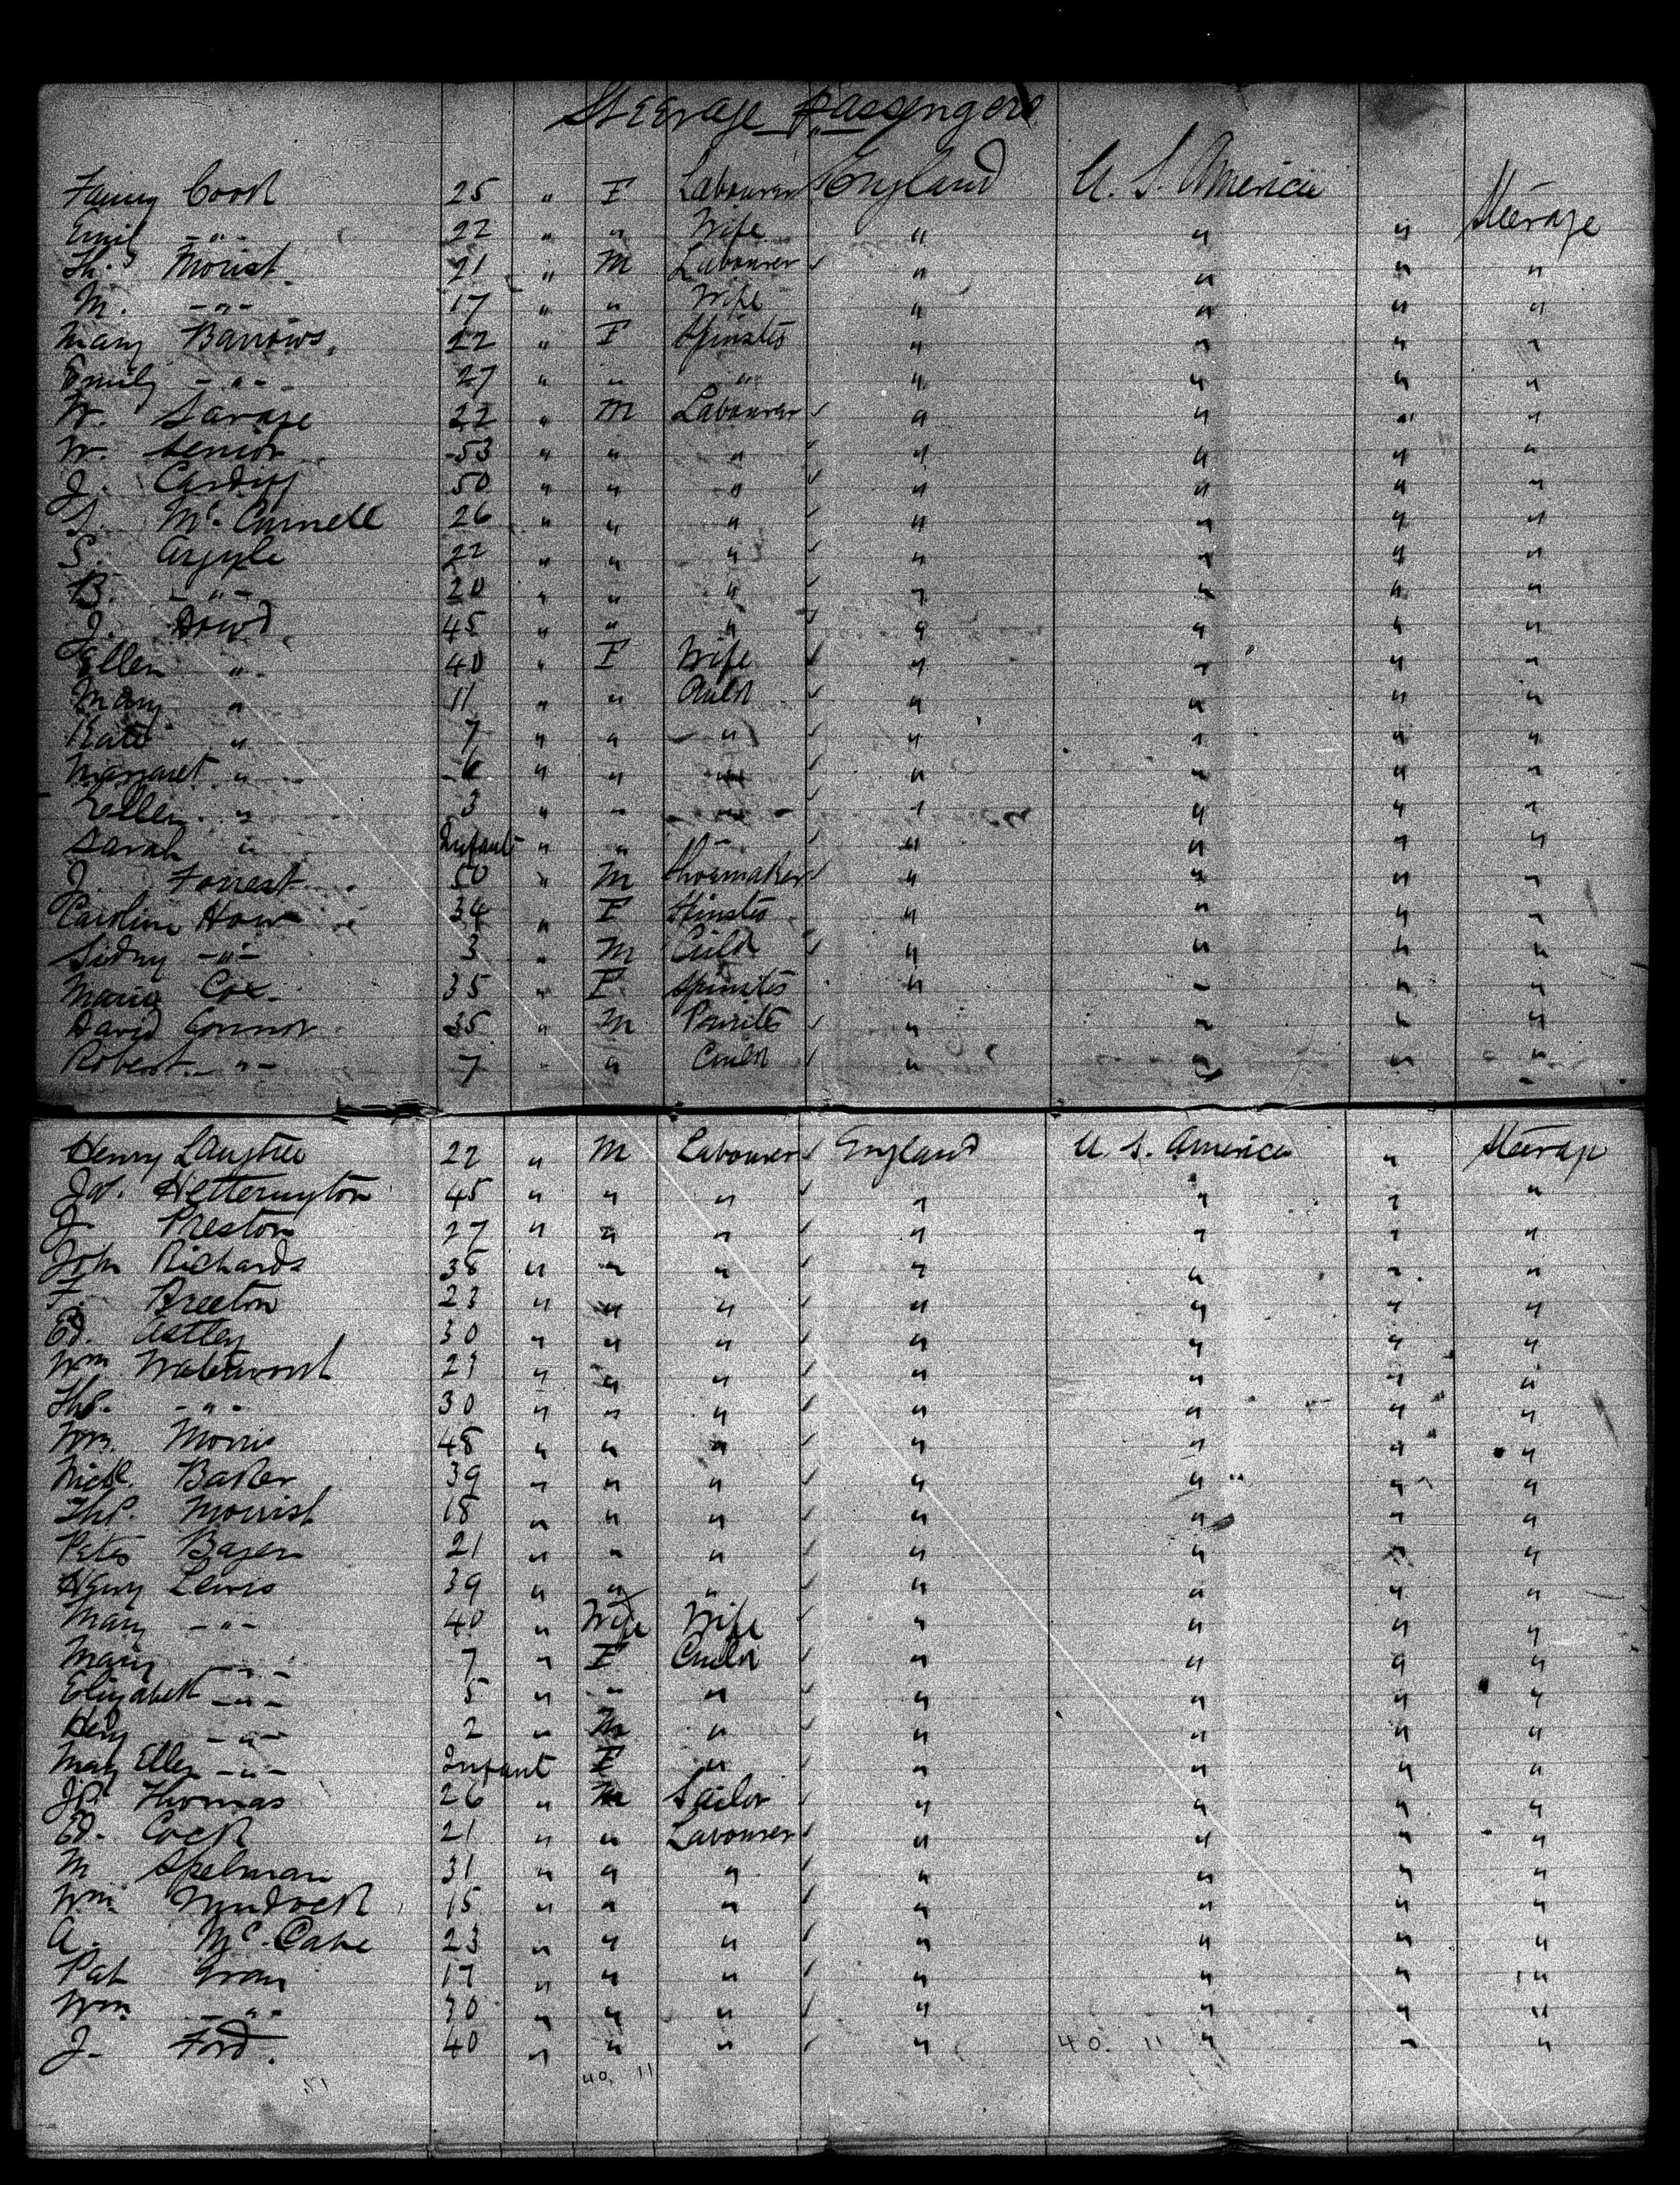 Steerage Passengers
Fanny Cook 25 " F Labourer England U. S. America Steerage
Emil -"- 22 " " Wife " " " "
Ths. Morist 21 " M Labourer " " " "
M. -"- 17 " " Wife " " " "
Mary Barrows 22 " F Spinster " " " "
Emily -"- 27 " " " " " " "
W. Savage 22 " M Labourer " " " "
W. Senior 53 " " " " " " "
J. Cardiff 50 " " " " " " "
Mc. Cornell 26 " " " " " " "
S. Argyle 22 " " " " " " "
B. -"- 20 " " " " " " "
J. 45 " " " " " " "
Ellen " 40 " F Wife " " " "
Mary " 11 " " Child " " " "
Kate " 7 " " " " " " "
Margaret " 6 " " " " " " "
Ellen " 3 " " " " " " "
Sarah " Infant " " " " " " "
J. Forrest 50 " M Shoemaker " " " "
Caroline How 34 " F Spinster " " " "
Sidny -"- 3 " M Child " " " "
Maria Cox 35 " F Spinster " " " "
David Connor 35 " M " " " "
Robert -"- 7 " " Child " " " "
Henry Langtree 22 " M Labourer England U. S. America " Steerage
Jas. Hetterington 45 " " " " " " "
J. Preston 27 " " " " " " "
John Richards 38 " " " " " " "
F. Breeton 23 " " " " " " "
Ed. Astley 30 " " " " " " "
Wm 21 " " " " " " "
Ths. -"- 30 " " " " " " "
Wm. Morris 48 " " " " " " "
Nick. Baker 39 " " " " " " "
Ths. Morrish 18 " " " " " " "
Peter Bazen 21 " " " " " " "
Henry Lewis 39 " " " " " " "
Mary -"- 40 " Wife Wife " " " "
Mary -"- 7 " F Child " " " "
Elizabeth -"- 5 " " " " " " "
Hery -"- 2 " M " " " " "
Mary Ellen -"- Infant F " " " " "
Js. Thomas 26 " M Sailor " " " "
Ed. Cock 21 " " Labourer " " " "
M Spelman 31 " " " " " " "
Wm. Murdock 15 " " " " " " "
A. Mc. Cabe 23 " " " " " " "
Pat Gray 17 " " " " " " "
Wm. -"- 30 " " " " " " "
J. Ford. 40 " " " " 40. 11 " " "
40. 11